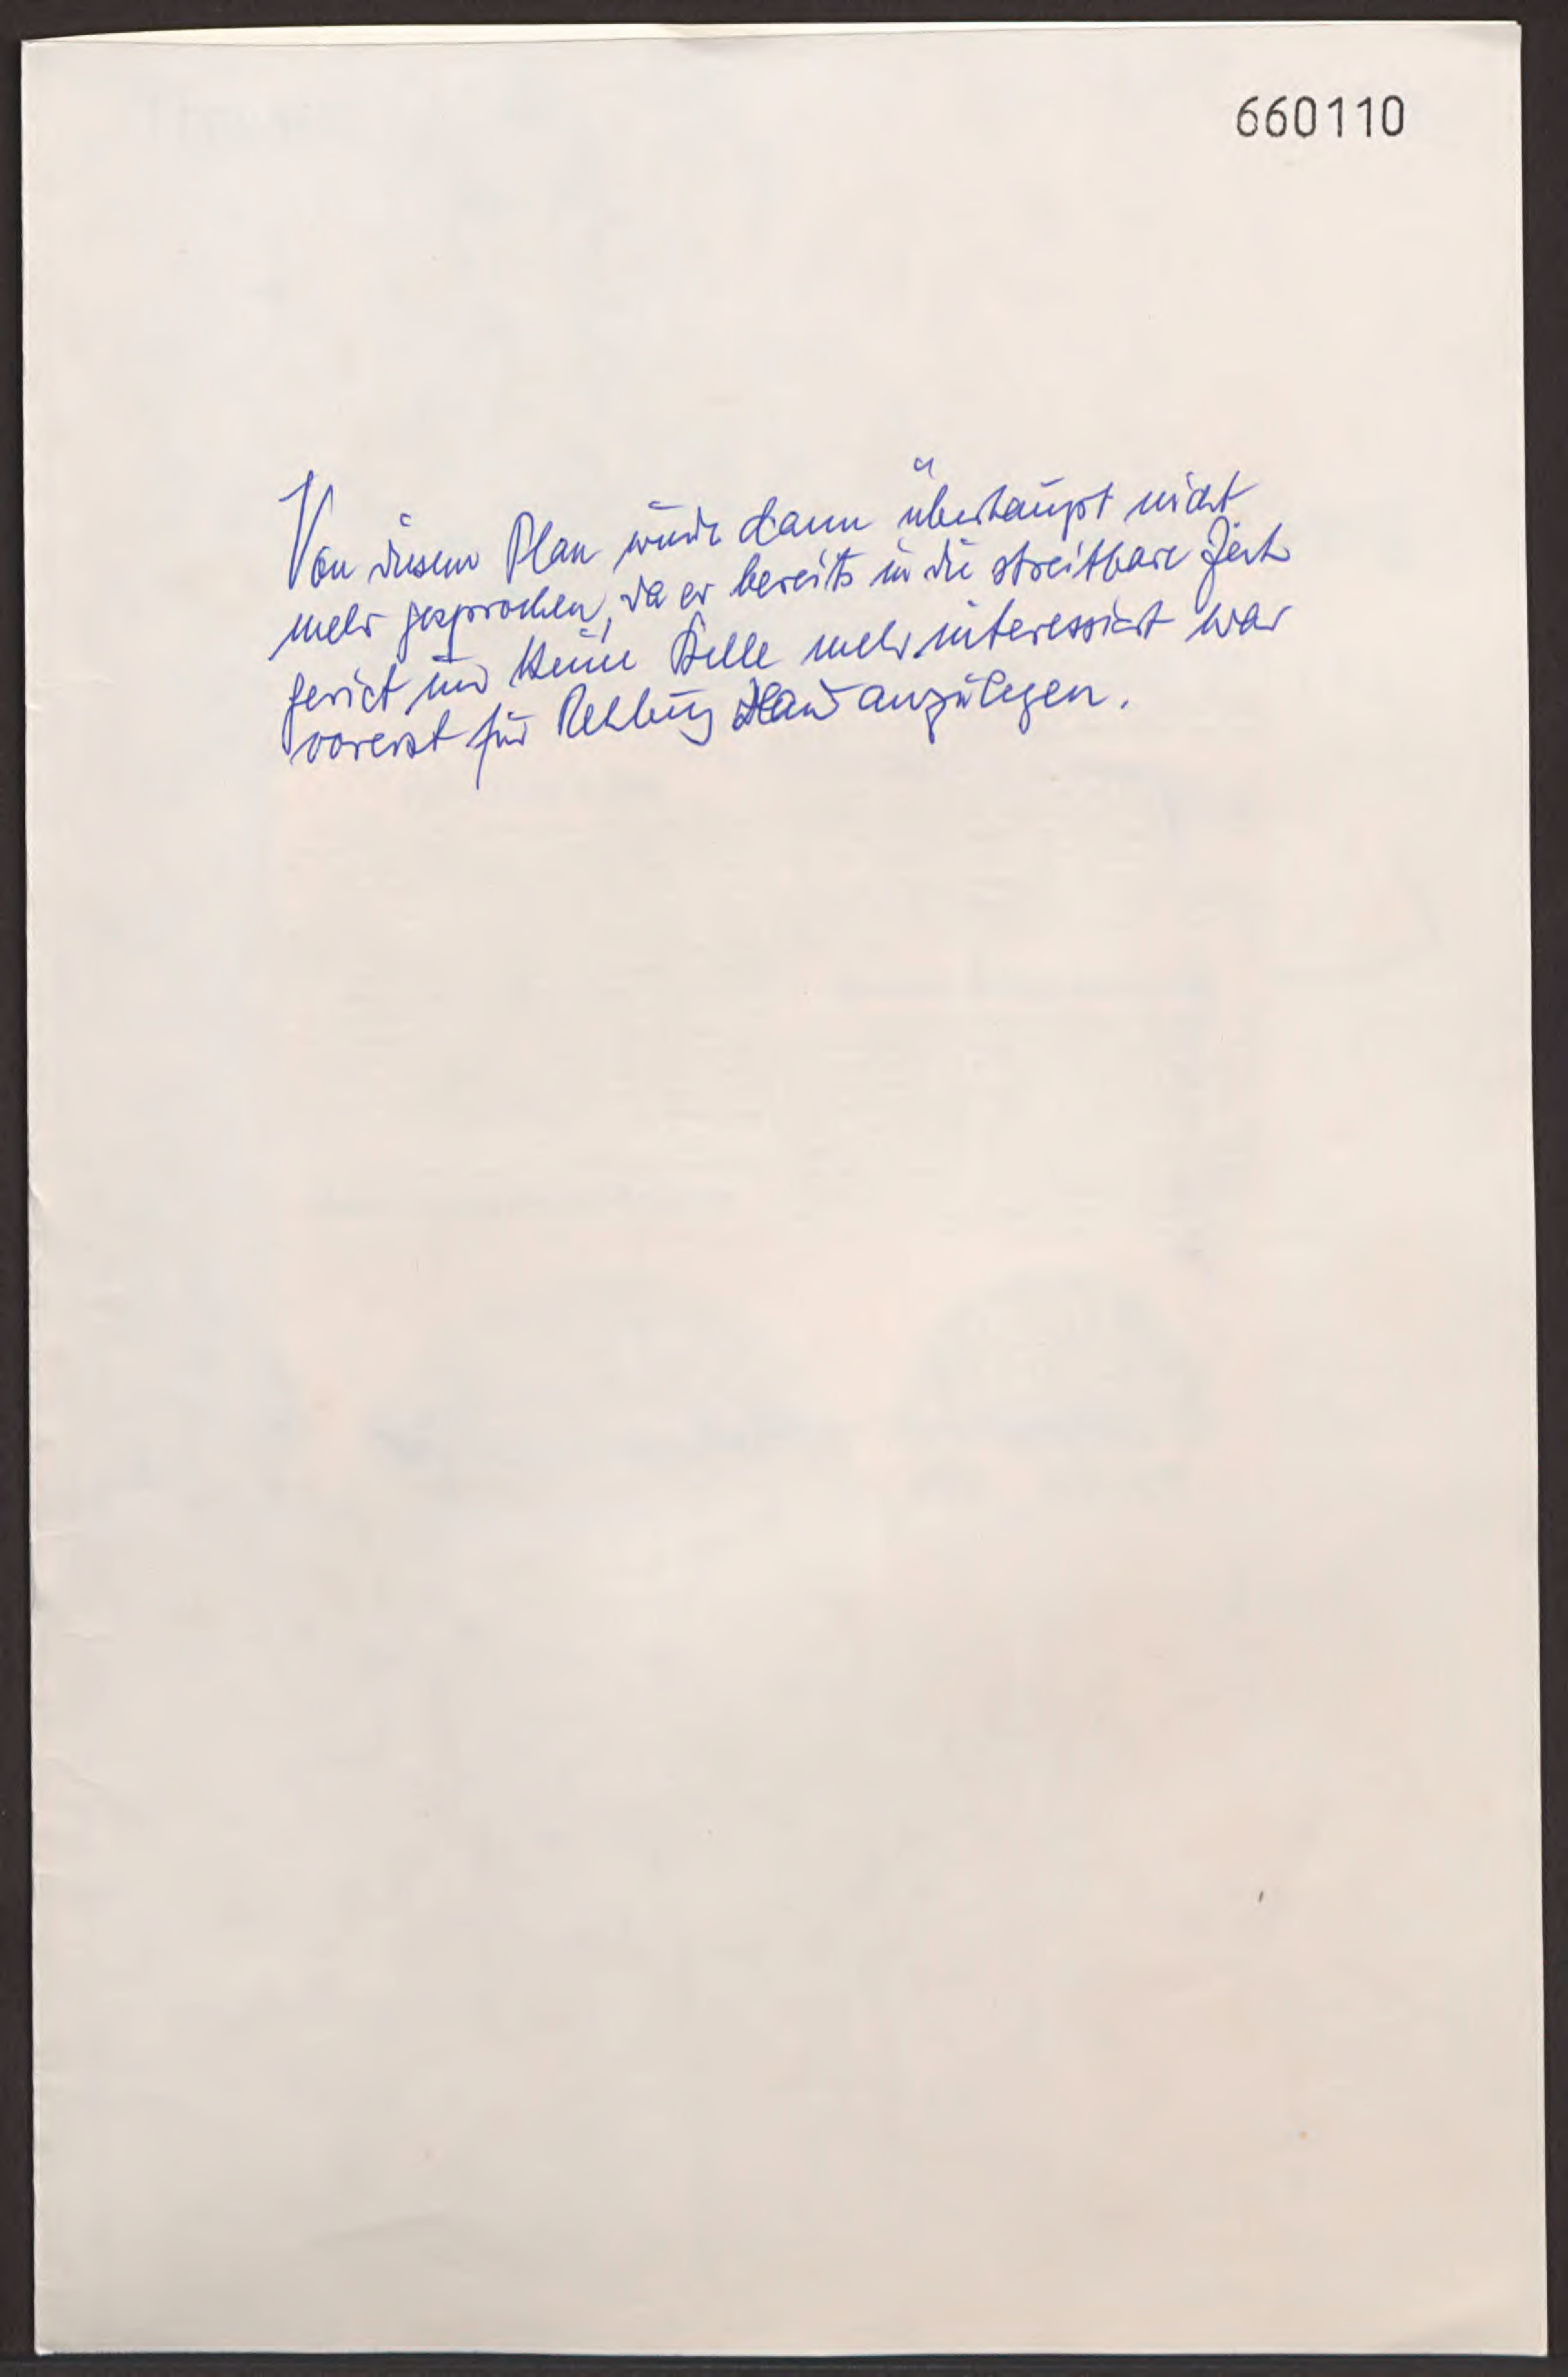 660110
Von diesem Plan wurde dann überhaupt nicht
mehr gesprochen, da er bereits in die streitbare Zeit
geriet und keine Stelle mehr interessiert war
vorerst für Rehburg Hand anzulegen.